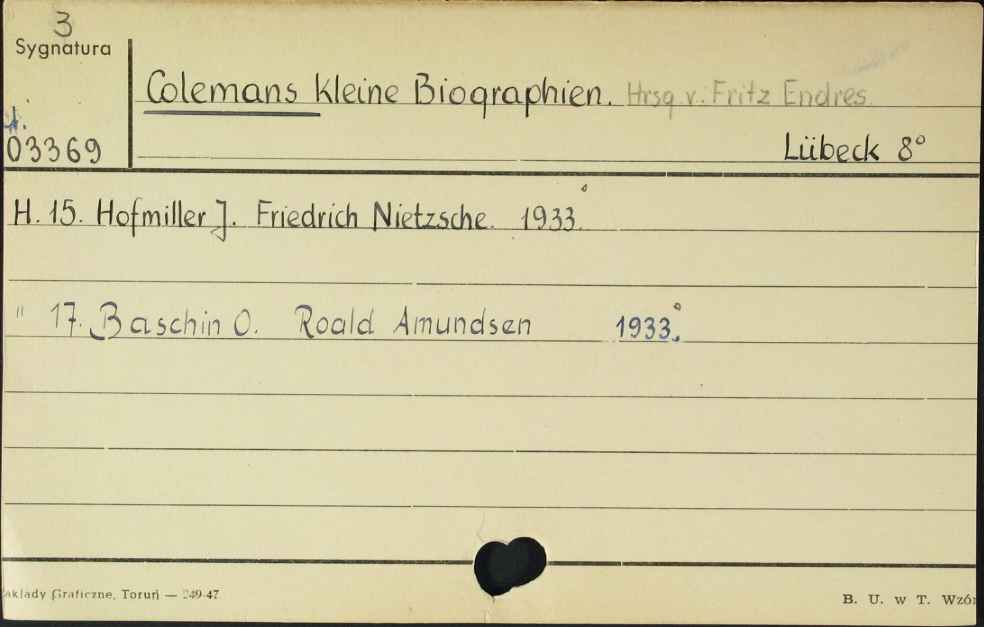 3
Sygnatura
Colemans Kleine Biographien. Hrsg. v. Fritz Endres
03369
Lübeck 8°
H. 15. Hofmiller J. Friedrich Nietzsche. 1933.°
" 17. Baschin O. Roald Amundsen 1933.°
akłady Graficzne, Toruń — 249-47
B. U. w T. Wzór